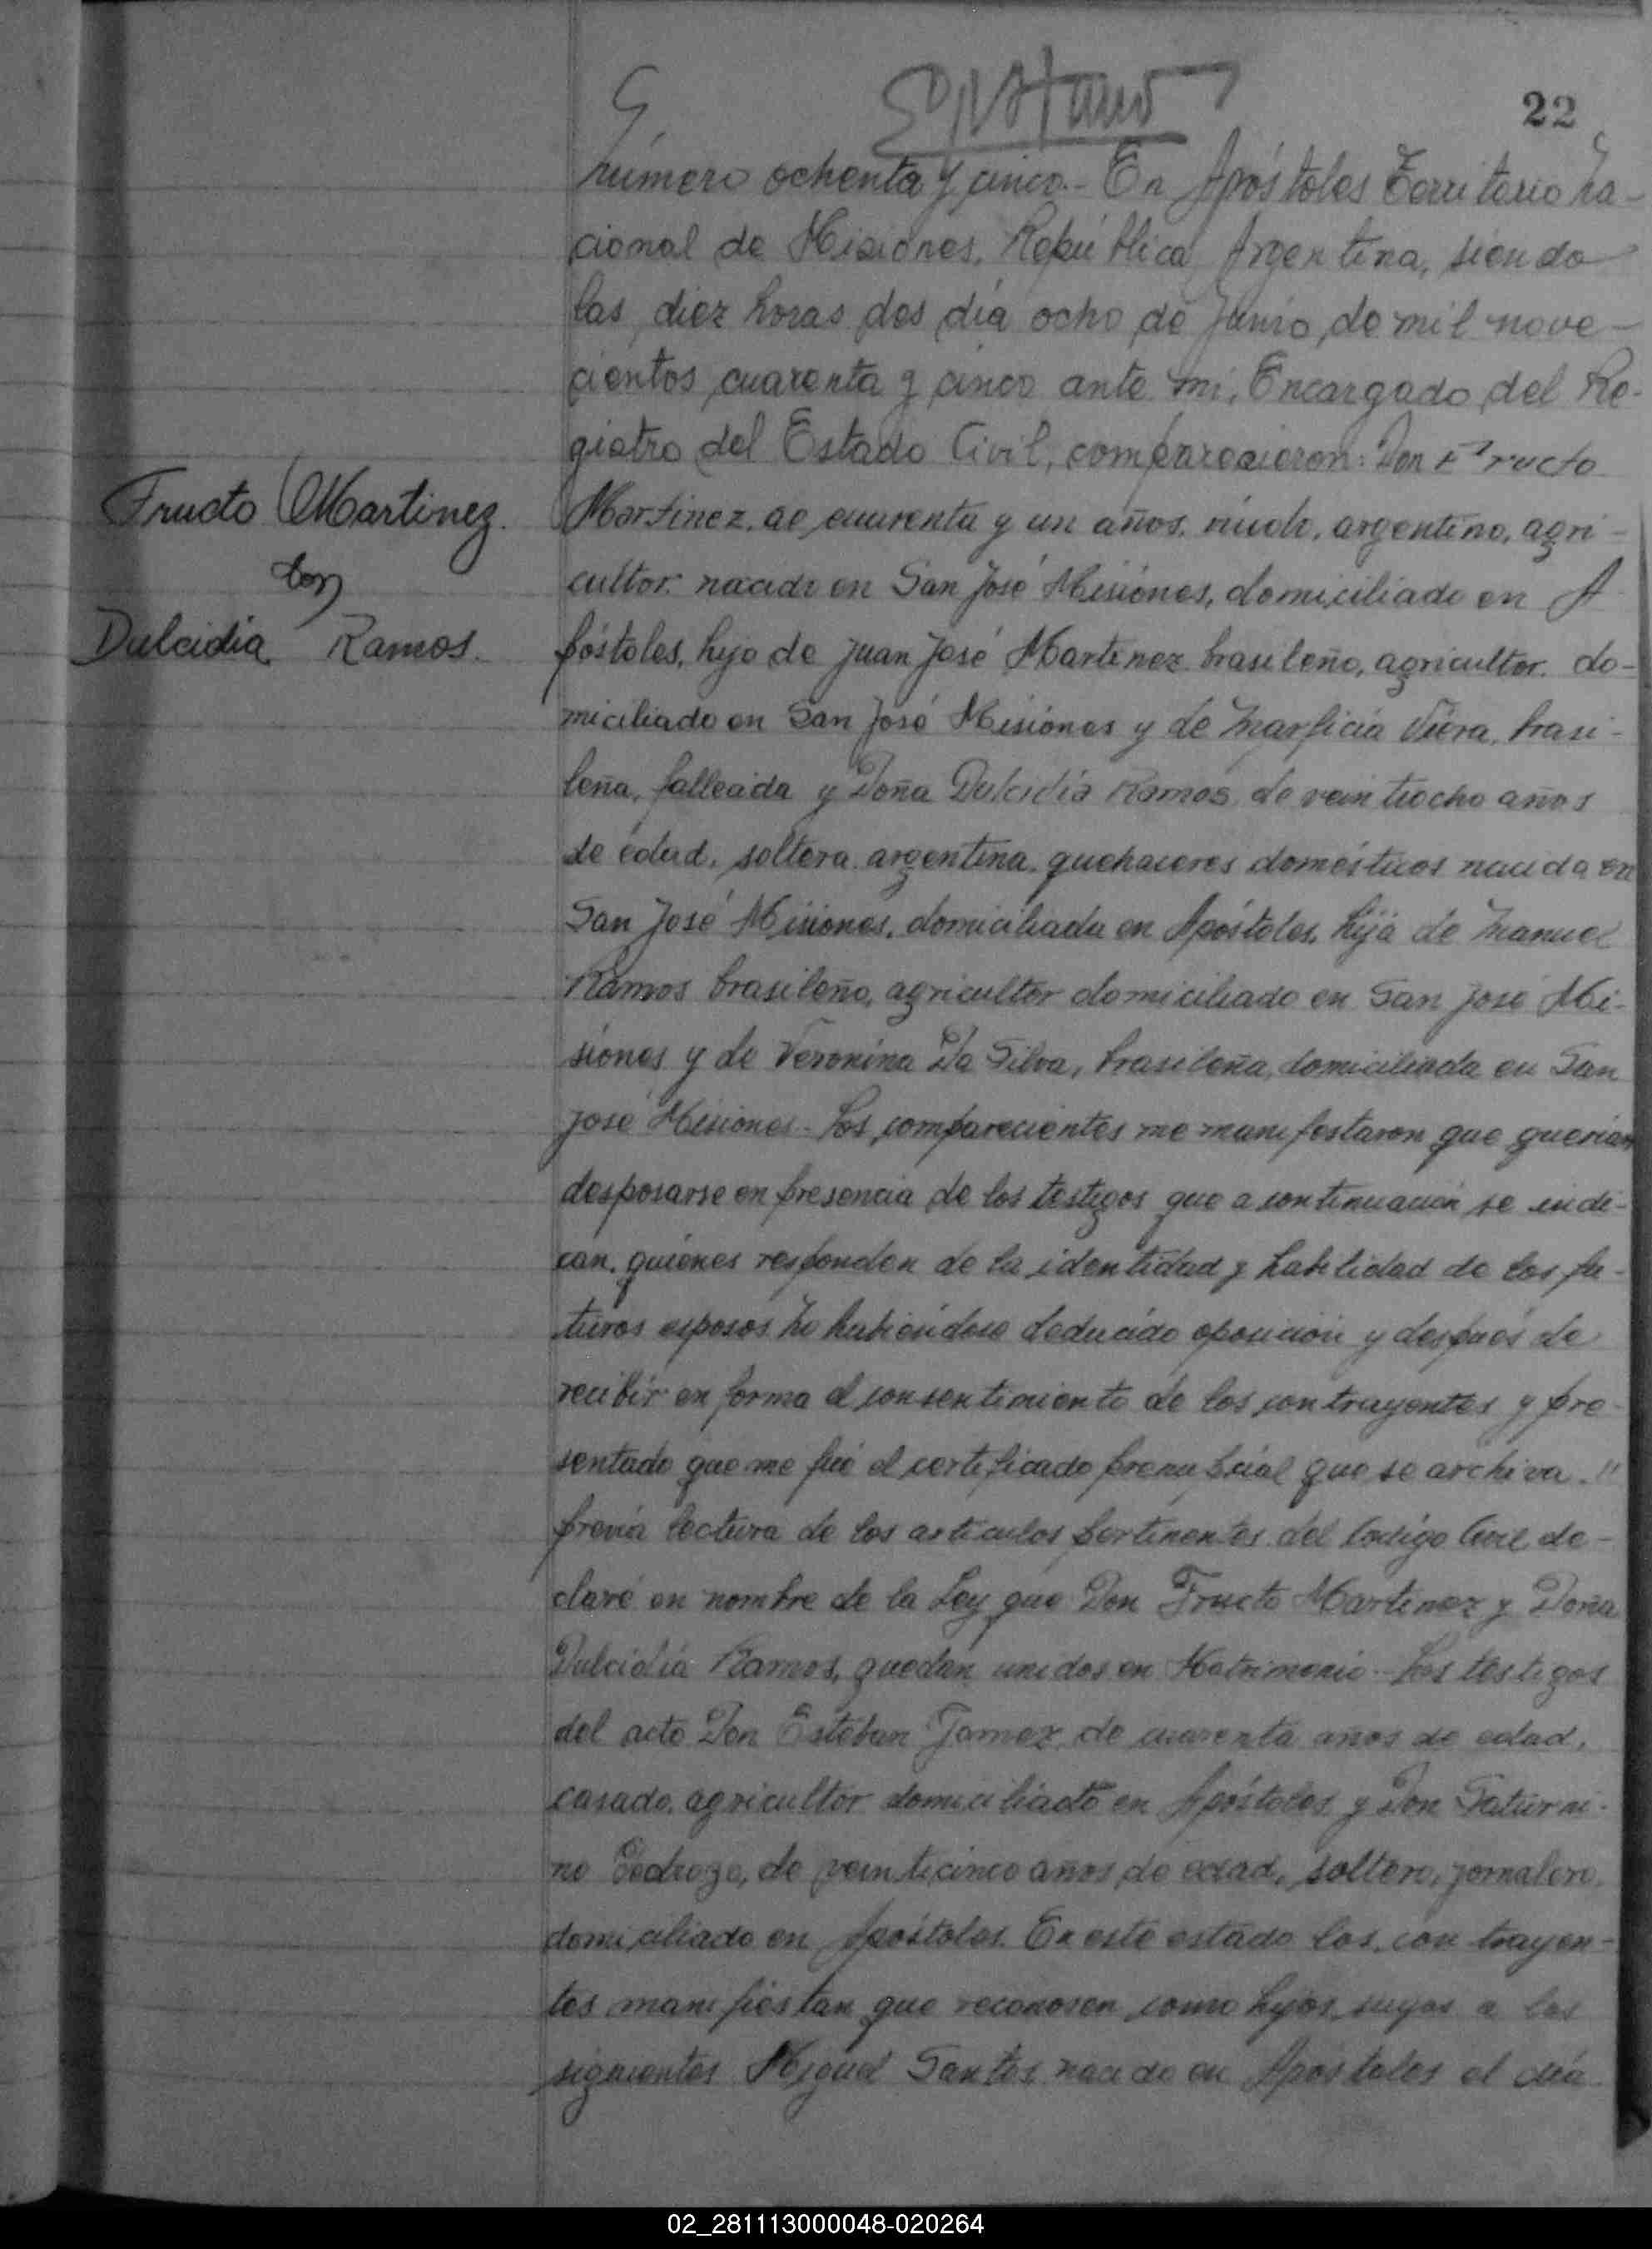 22
Número ochenta y cinco.- En Apóstoles Territorio Na-
cional de Misiones, República Argentina, siendo
las diez horas des día ocho de Junio de mil nove-
cientos cuarenta y cinco ante mi, Encargado del Re-
gistro del Estado Civil, comparecieron: Don Fructo
Fructo Martinez.
con
Dulcidia Ramos.
Martinez, de cuarenta y un años, viudo, argentino, agri-
cultor, nacido en San José Misiones, domiciliado en A
póstoles, hijo de Juan José Martinez brasileño, agricultor, do-
miciliado en San José Misiones y de Viera, brasi-
leña, fallecida y Doña Dulcidia Ramos de veintiocho años
de edad, soltera, argentina, quehaceres domésticos nacida en
San José Misiones, domiciliada en Apóstoles, hija de Manuel
Ramos brasileño, agricultor domiciliado en San José Mi-
siones y de Veronina Da Silva, brasileña, domiciliada en San
José Misiones.- Los comparecientes me manifestaron que querian
desposarse en presencia de los testigos que a continuación se indi-
can, quiénes responden de la identidad y habilidad de los fu-
turos esposos. No habiéndose deducido oposición y después de
recibir en forma el consentimiento de los contrayentes y pre-
sentado que me fué el certificado prenupcial que se archiva."
previa lectura de los artículos pertinentes del Codigo Civil de-
claré en nombre de la Ley que Don Fructo Martinez y Doña
Dulcidia Ramos, quedan unidos en Matrimonio.- Los testigos
del acto Don Esteban de cuarenta años de edad,
casado, agricultor domiciliado en Apóstoles y Don Saturni-
no de veinticinco años de edad, soltero, jornalero,
domiciliado en Apóstoles. En este estado los contrayen-
tes manifiestan que reconocen como hijos suyos a los
siguientes Miguel Santos nacido en Apóstoles el día
02_281113000048-020264